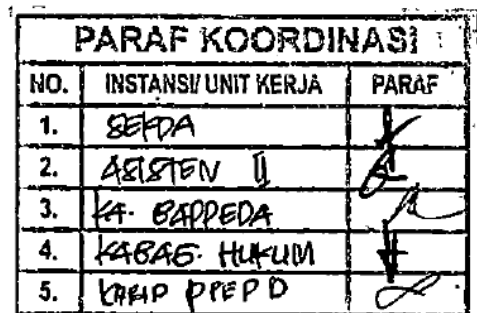 PARAF KOORDINASI
NO. INSTANSI/ UNIT KERJA PARAF
1. SEKDA
2. ASISTEN II
3. KA. BAPPEDA
4. KABAG. HUKUM
5. KABID PPEPD